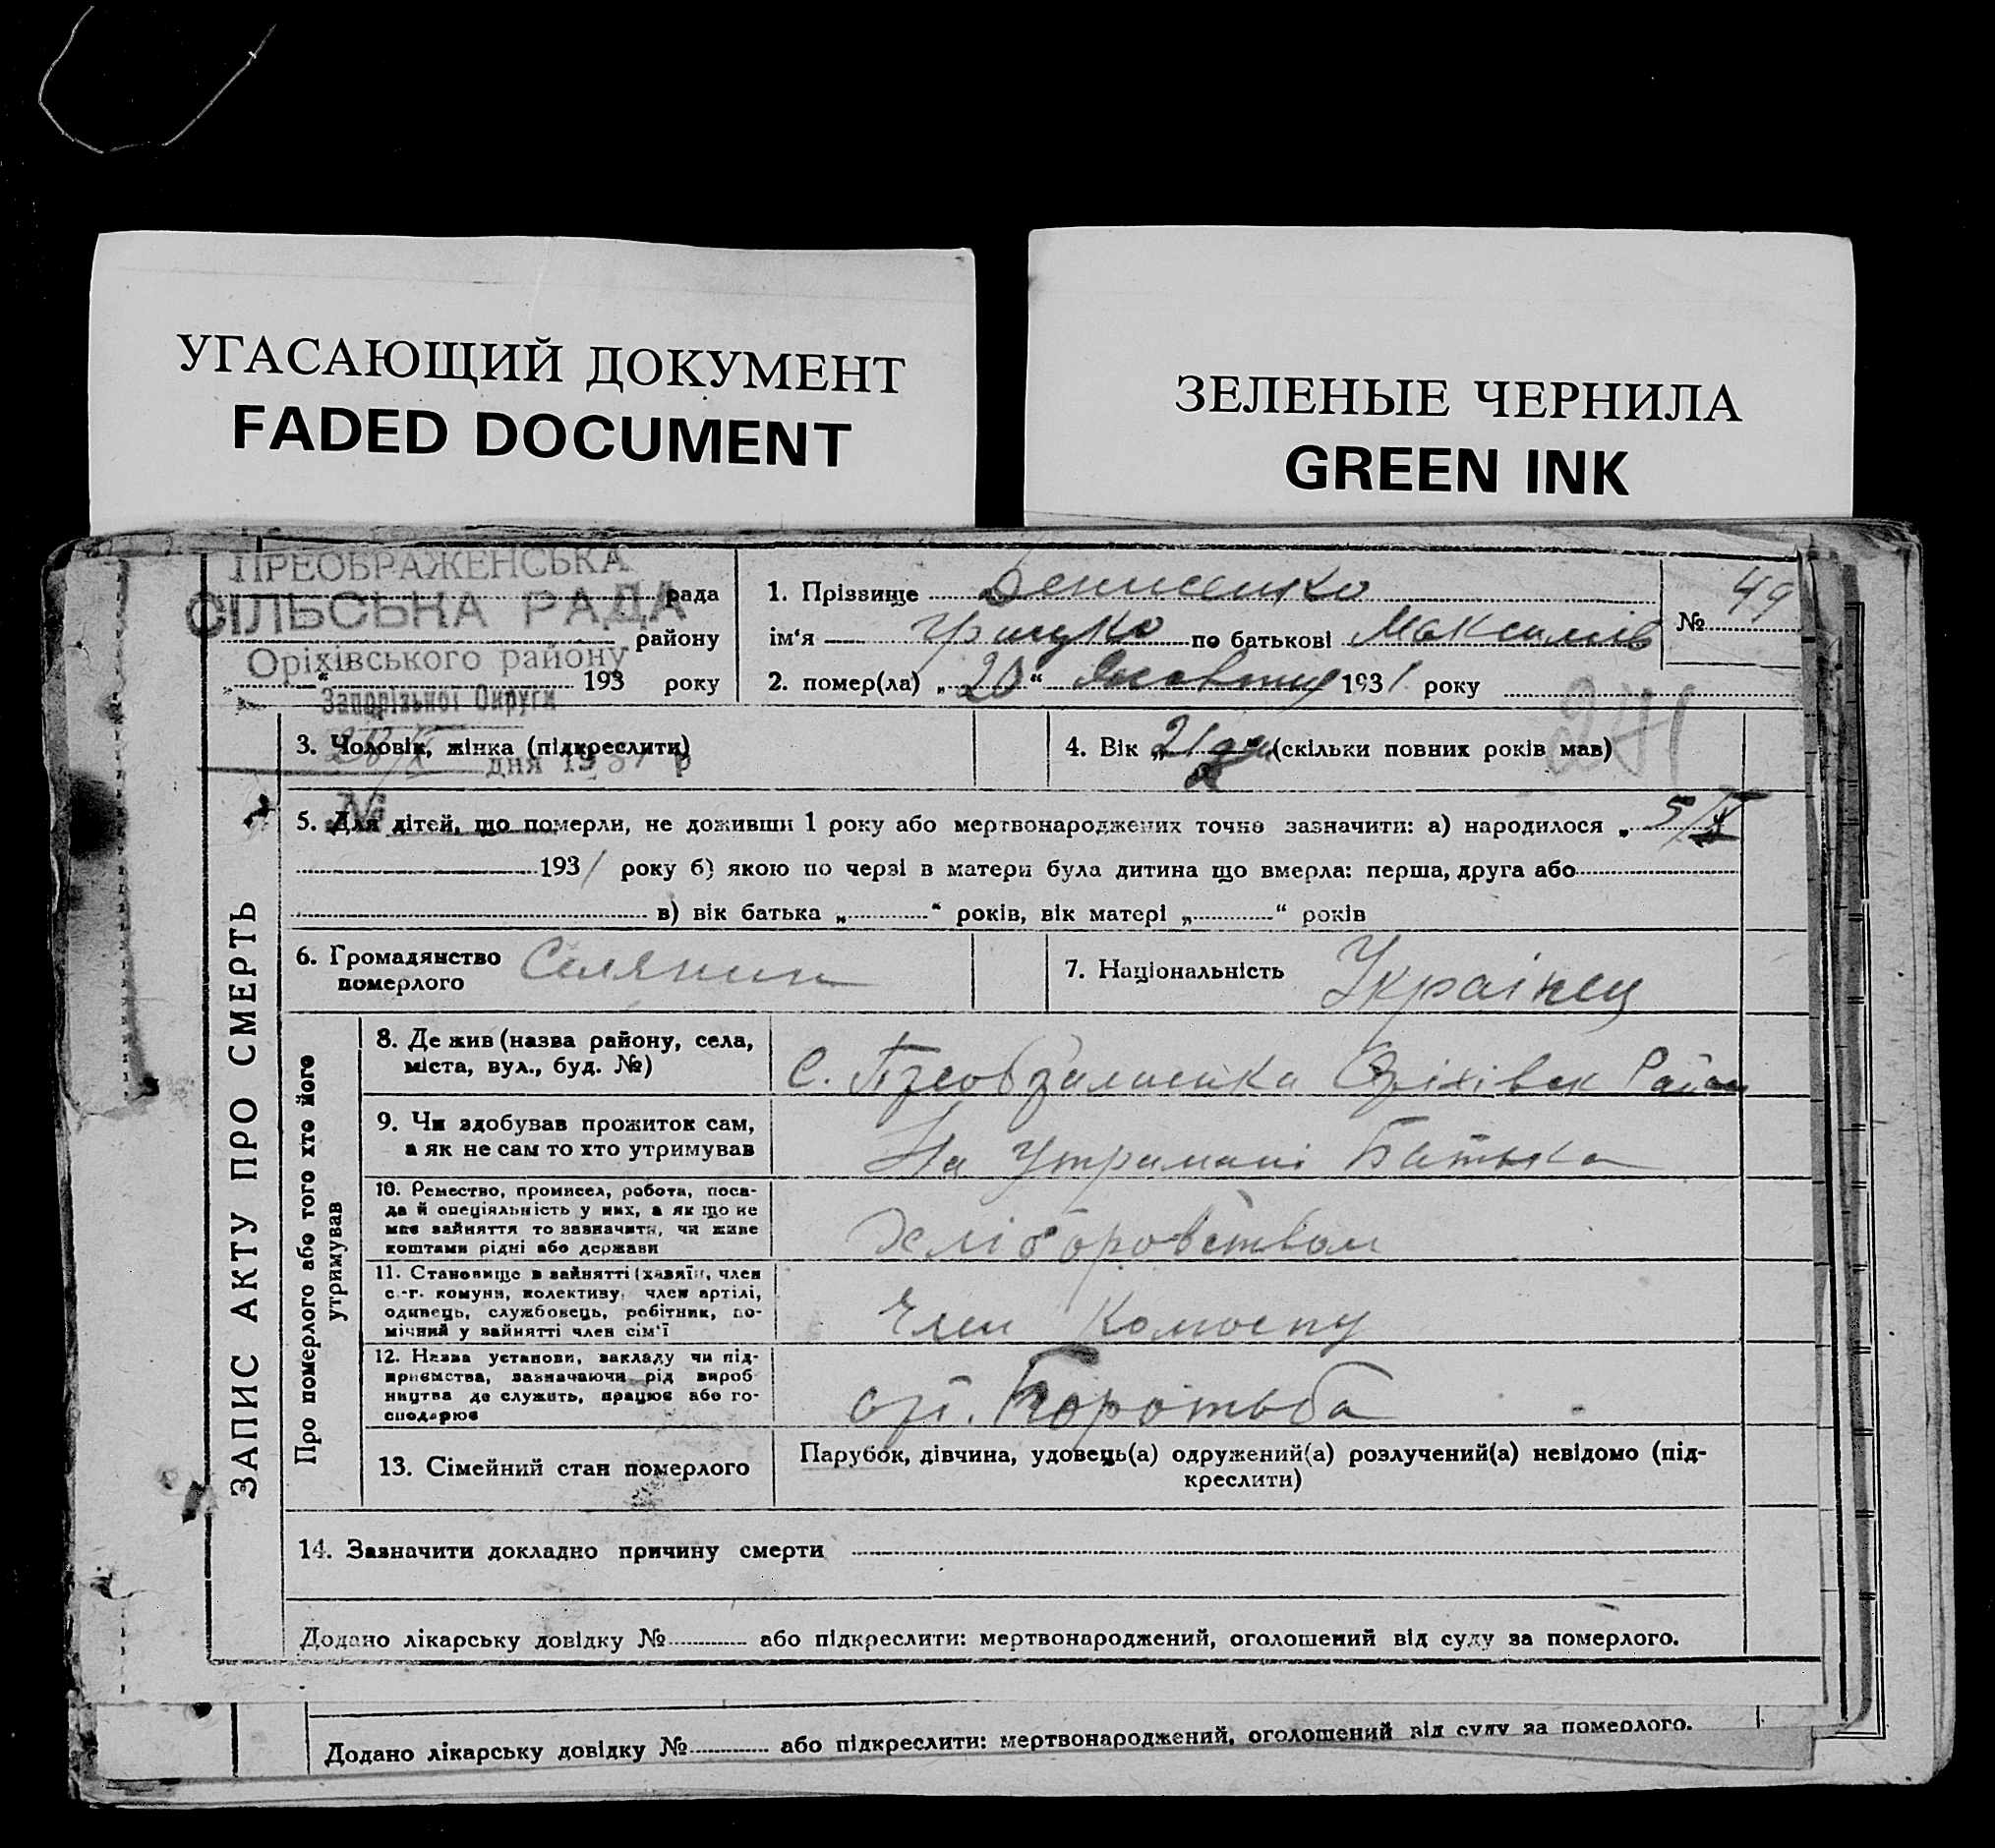 УГАСАЮЩИЙ ДОКУМЕНТ
FADED DOCUMENT
ЗЕЛЕНЫЕ ЧЕРНИЛА
GREEN INK
ПРЕОБРАЖЕНСЬКА
рада
СІЛЬСЬКА РАДА
району
Оріхівського району
193 року
Запорізької Округи
дня 1931 р
№
1. Прізвище Денисенко
№ 49
ім'я Грицько по батькові Максимів
2. помер(ла) „20“ 1931 року
241
3. Чоловік, жінка (підкреслити)
4. Вік „21 (скільки повних років мав)
5. Для дітей, що померли, не доживши 1 року або мертвонароджених точно зазначити: а) народилося „5/X
1931 року б) якою по черзі в матери була дитина що вмерла: перша, друга або
в) вік батька „ “ років, вік матері „ “ років
6. Громадянство померлого Селянин
7. Національність Українец
ЗАПИС АКТУ ПРО СМЕРТЬ
Про померлого або того хто його утримував
8. Де жив (назва району, села,
міста, вул., буд. №)
С. Преображенка Оріхівск Район
9. Чи здобував прожиток сам,
а як не сам то хто утримував
На Утримані Батька
10. Ремество, промисел, робота, поса-
да й спеціяльність у них, а як що не
має зайняття то зазначити, чи живе
коштами рідні або держави
Хліборобством
11. Становище в зайнятті (хазяїн, член
с.-г. комуни, колективу, член артілі,
одинець, службовець, робітник, по-
мічний у зайнятті член сім'ї
Член Колгоспу
12. Назва установи, закладу чи під-
приємства, зазначаючи рід вироб
ництва де служить, працює або го-
сподарює
арт. Боротьба
13. Сімейний стан померлого
Парубок, дівчина, удовець(а) одружений(а) розлучений(а) невідомо (під-
креслити)
14. Зазначити докладно причину смерти
Додано лікарську довідку № або підкреслити: мертвонароджений, оголошений від суду за померлого.
Додано лікарську довідку № або підкреслити: мертвонароджений, оголошений від суду за померлого.